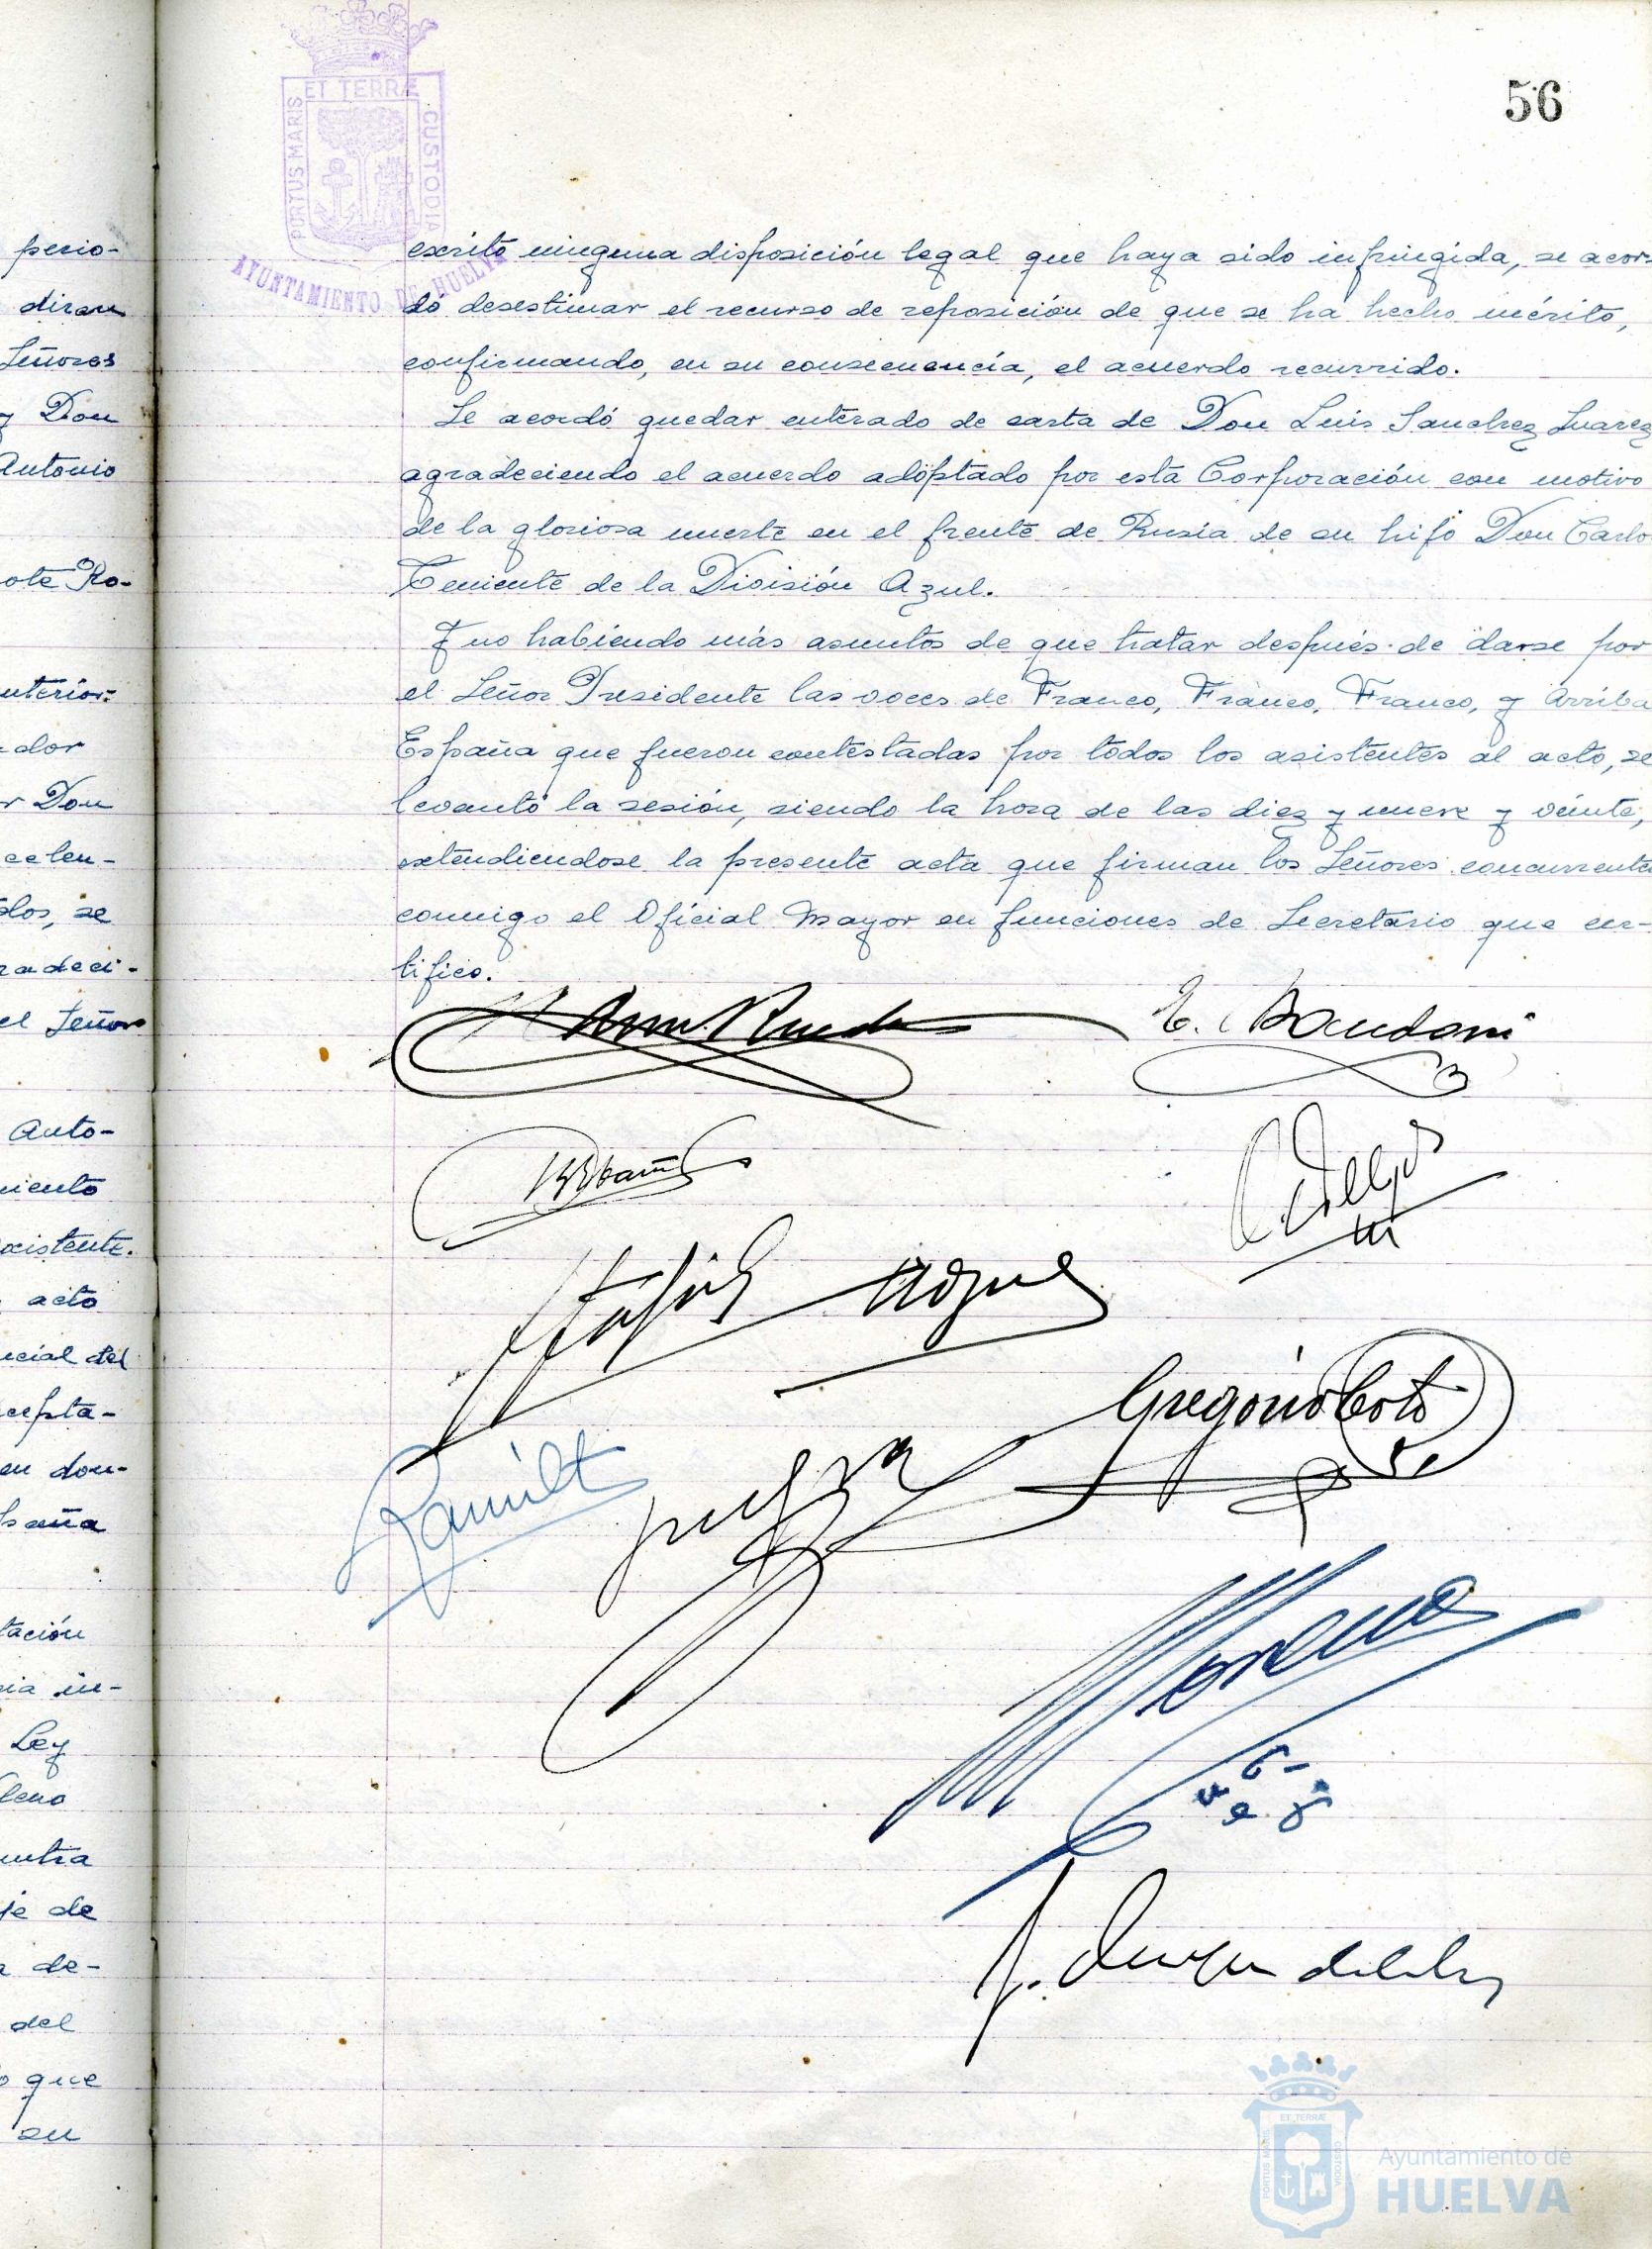 56
ET TERRÆ
PORTUS MARIS
CUSTODIA
AYUNTAMIENTO DE HUELVA
perio-
diran
Señores
y Don
Antonio
ote Ro-
nterior:
dor
r Don
celen-
dos, se
radeci-
el Señor
Auto-
miento
existente.
acto
ncial del
cepta-
en don-
España
tación
ria in-
Ley
leno
ontra
je de
a de-
del
o que
su
escrito ninguna disposición legal que haya sido infringida, se acor-
dó desestimar el recurso de reposición de que se ha hecho mérito,
confirmando, en su consecuencia, el acuerdo recurrido.
Se acordó quedar enterado de carta de Don Luis Sanchez Suarez
agradeciendo el acuerdo adoptado por esta Corporación con motivo
de la gloriosa muerte en el frente de Rusia de su hijo Don Carlo
Teniente de la División Azul.
Y no habiendo más asuntos de que tratar después de darse por
el Señor Presidente las voces de Franco, Franco, Franco, y Arriba
España que fueron contestadas por todos los asistentes al acto, se
levantó la sesión, siendo la hora de las diez y nueve y veinte,
extendiendose la presente acta que firman los Señores concurrentes
conmigo el Oficial Mayor en funciones de Secretario que cer-
tifico.
Gregorio Coto
Moreno
ET TERRÆ
PORTUS MARIS
CUSTODIA
Ayuntamiento de
HUELVA